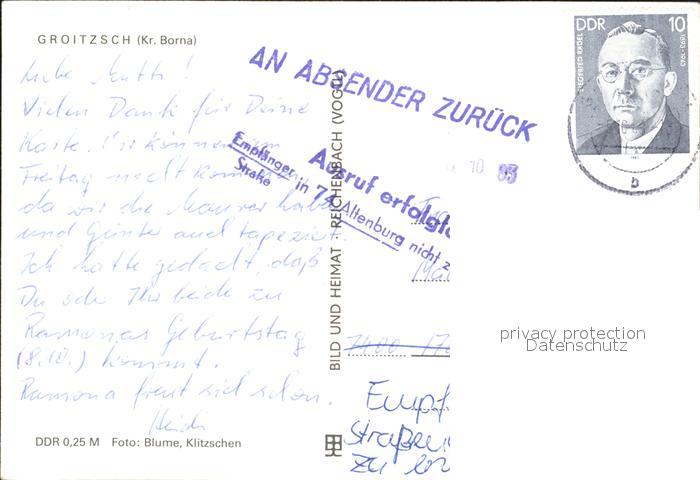 GROITZSCH (Kr. Borna)
Liebe Mutti!
Vielen Dank für Deine
Karte. Wir können am
Freitag nicht kommen,
da wir die Maurer haben
und Günter auch tapeziert.
Ich hatte gedacht, daß
Du oder Ihr beide zu
Ramonas Geburtstag
(8.10.) kommt.
Ramona freut sich schon.
Heidi
DDR 0,25 M Foto: Blume, Klitzschen
BILD UND HEIMAT · REICHENBACH (VOGTL)
AN ABSENDER ZURÜCK
10. 83
Anruf erfolglo
Empfänger in 74 Altenburg nicht z
Straße
7400
Empf
straßen
zu
DDR 10
1893-1943
b
privacy protection
Datenschutz